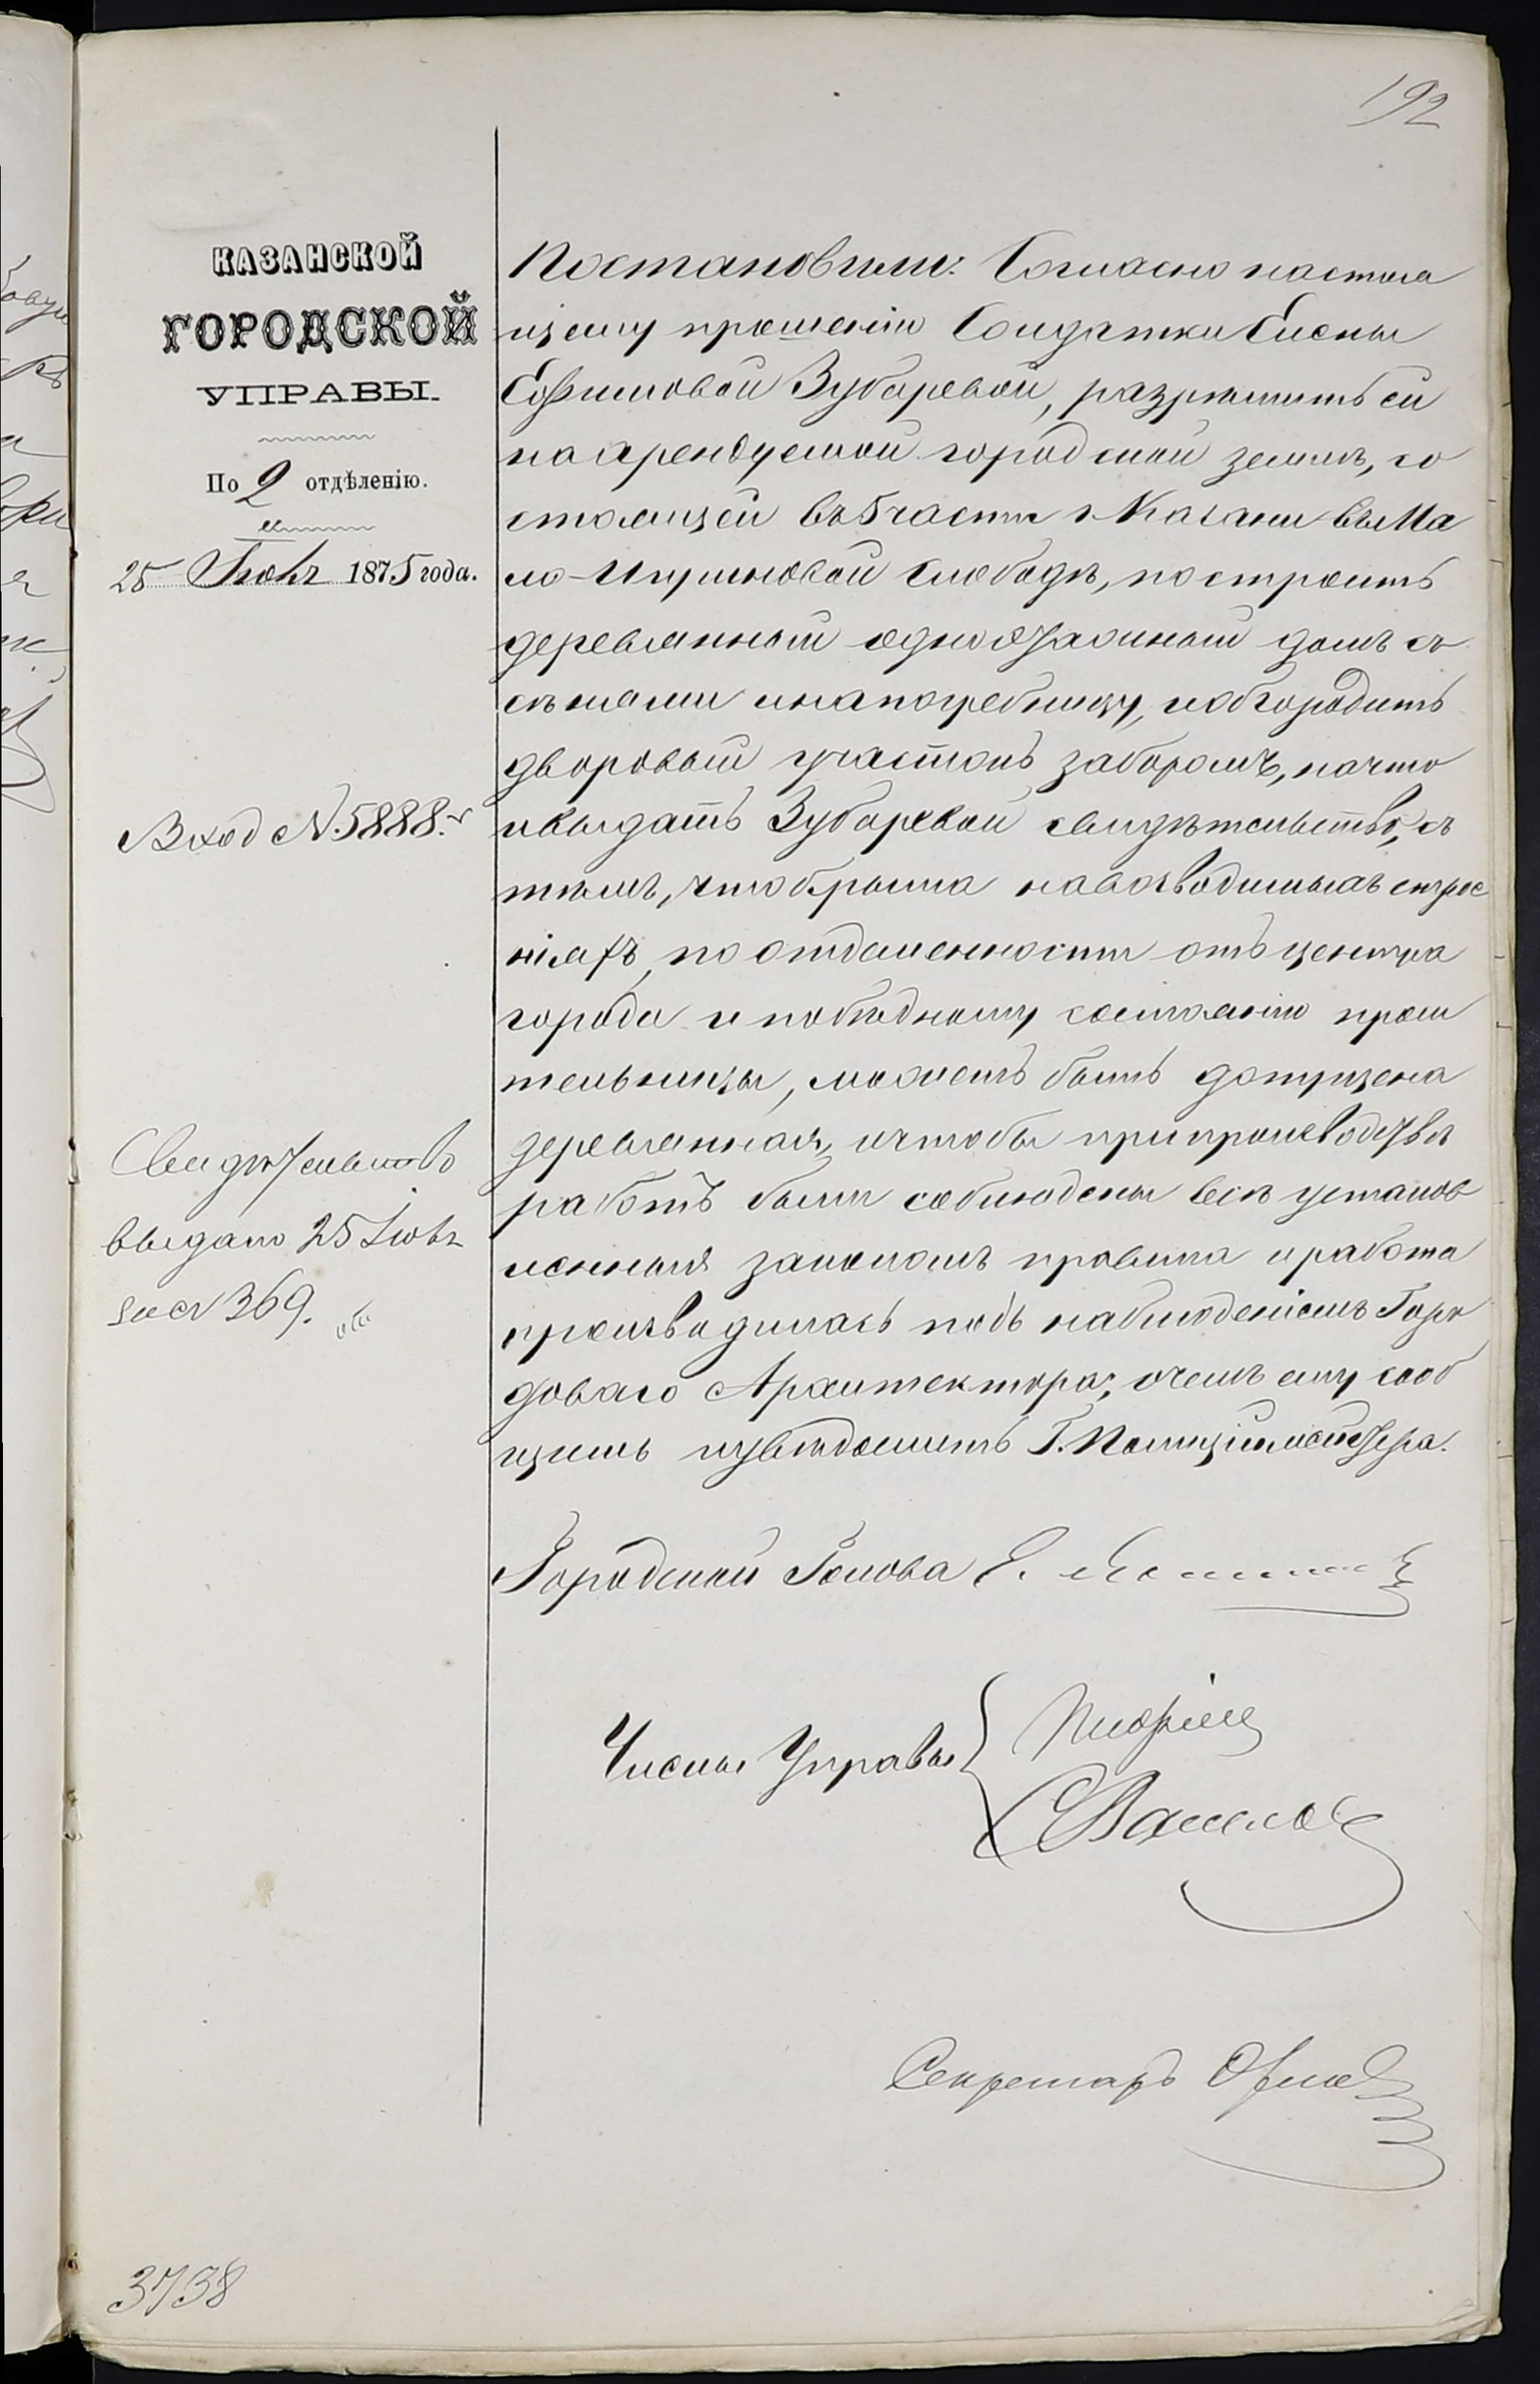 192
КАЗАНСКОЙ
ГОРОДСКОЙ
УПРАВЫ.
По 2 отдѣленію.
25 Іюня 1875 года.
Вход №. 5888.
Свидѣтельство
выдано 25 Іюня
за № 369.
Постановили: Согласно настоя
щему прошенію Солдатки Елены
Ефимовой Зубаревой, разрѣшить ей
на арендуемой городской землѣ, со
стоящей въ 5 части г. Казани въ Ма
ло-Игумновой слободѣ, построить
деревянный одноэтажный домъ съ
сѣнями и напогребницу, и обгородить
дворовый участокъ заборомъ, на что
и выдать Зубаревой свидѣтельство, съ
тѣмъ, чтобы крыша на возводимыхъ строе
ніяхъ, по отдаленности отъ центра
города и по бѣдному состоянію проси
тельницы, можетъ быть допущена
деревянная, и чтобы при производствѣ
работъ были соблюдены всѣ установ
ленныя закономъ правила и работа
производилась подъ наблюденіемъ Горо
доваго Архитектора; о чемъ ему сооб
щить и увѣдомить Г. Полиціймейстера.
Городской Голова Е.
Члены Управы
Секретарь Орлов
3738